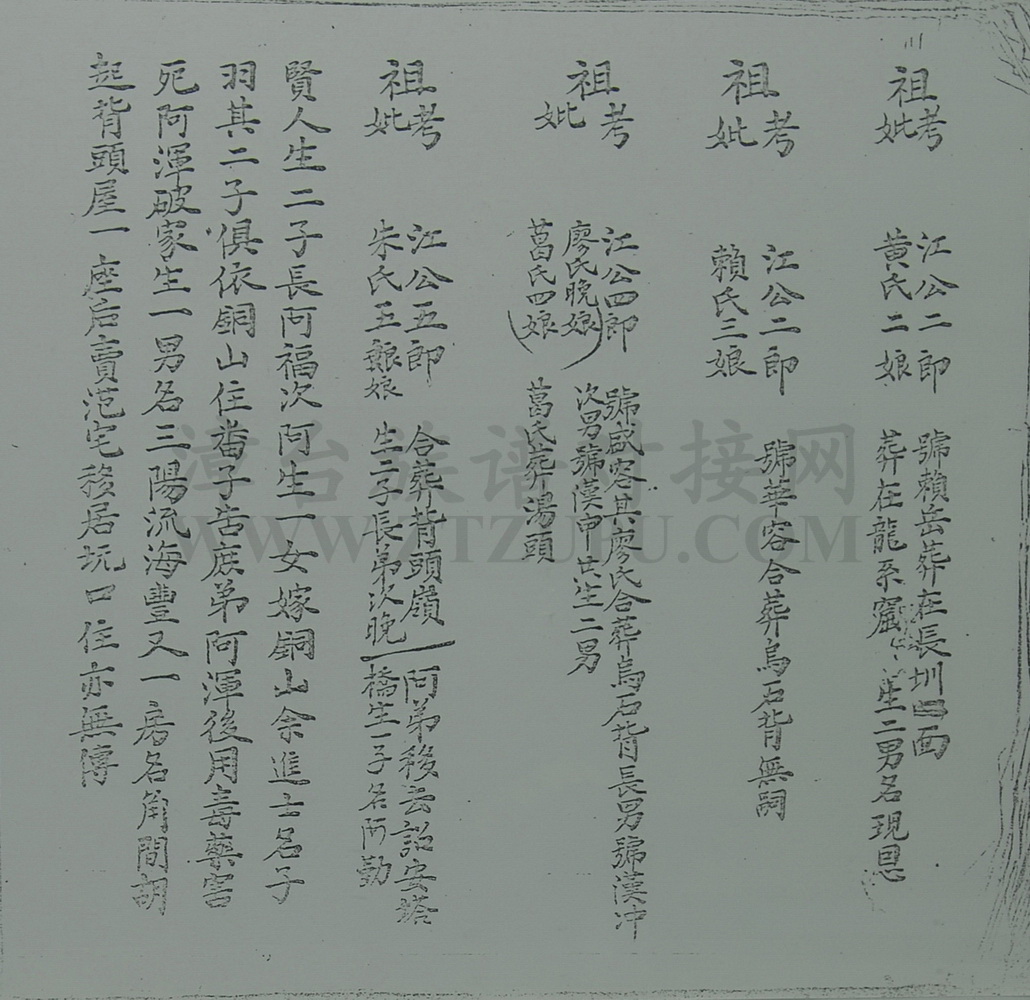 祖考妣 江公二郎 號賴岳葬在長圳面
黃氏二娘 葬在龍系窟生二男名現恩
祖考妣 江公二郎 號華容合葬烏石背無嗣
賴氏三娘
祖考妣 江公四郎 號盛容其廖氏合葬烏石背長男號漢冲
廖氏晚娘 次男號漢申共生二男
葛氏四娘 葛氏葬湯頭
祖考妣 江公五郎 合葬背頭嶺 阿弟移去詔安塔
朱氏五娘 生二子長弟次晚 橋生一子名阿勤
賢人生二子長阿福次阿生一女嫁銅山余進士名子
羽其二子俱依銅山住番子告庶弟阿渾後用毒藥害
死阿渾破家生一男名三陽流海豐又一房名角間胡
起背頭屋一座后賣范宅移居坑口住亦無傳
漳台族谱对接网
WWW.ZTZUPU.COM